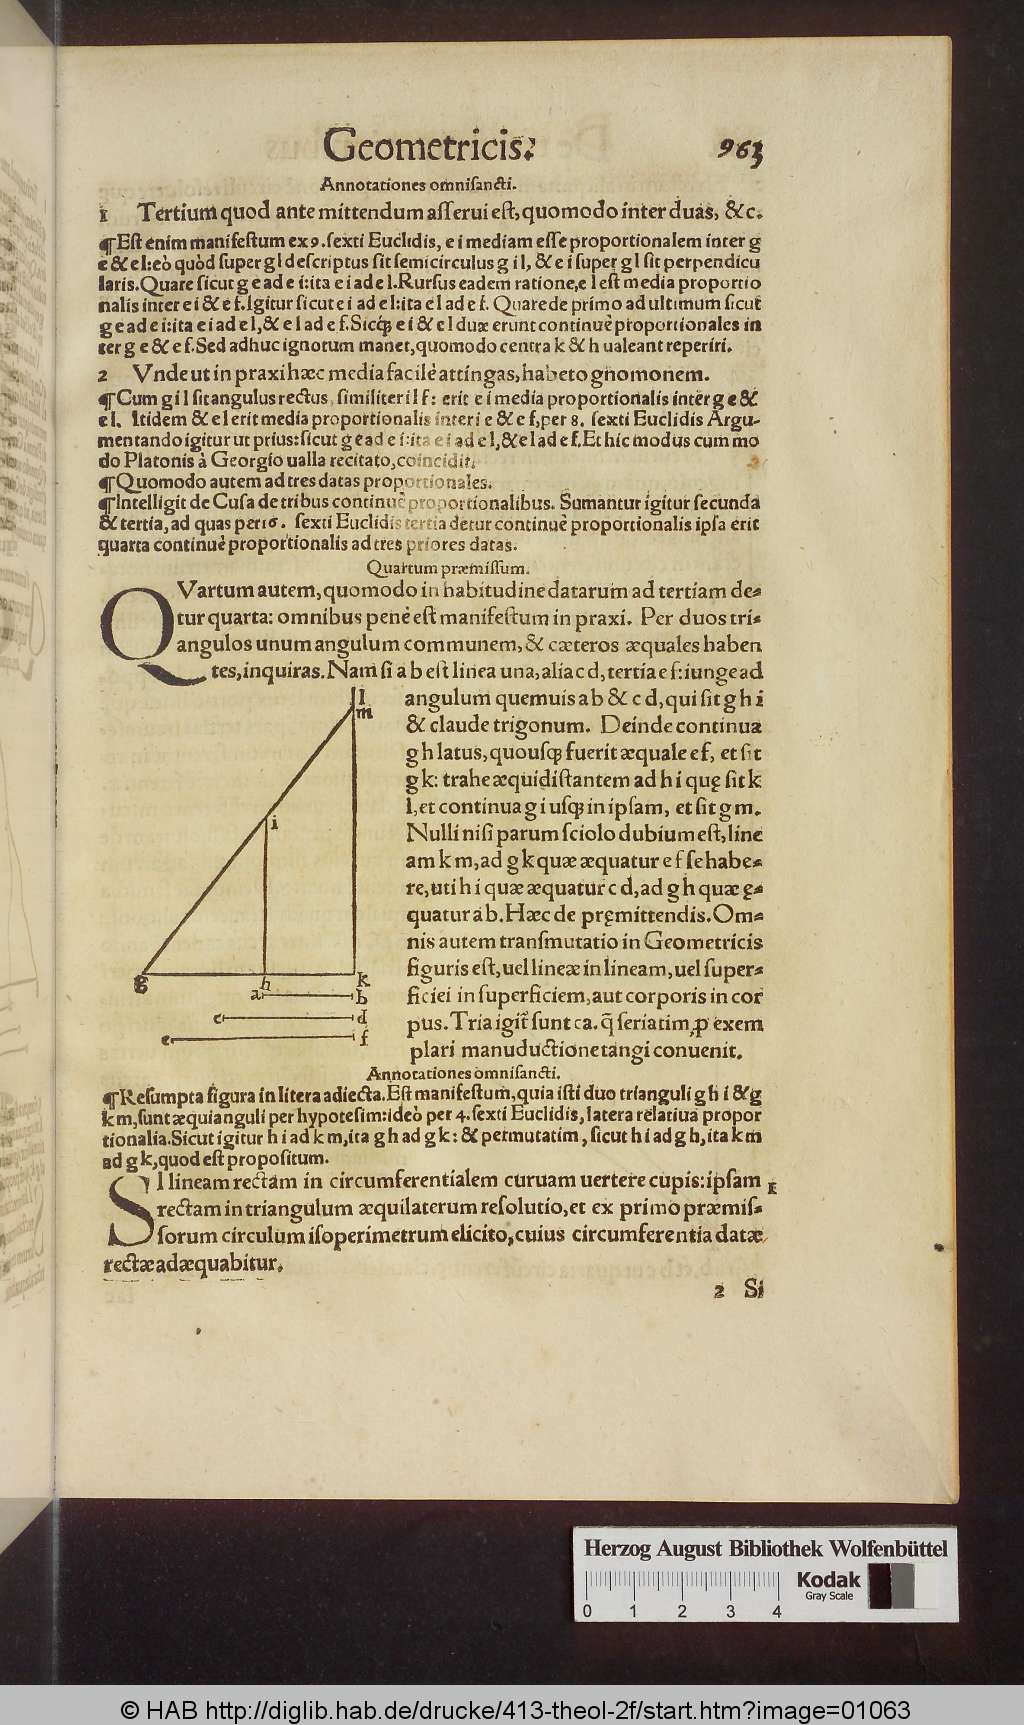 Geometricis. 963
Annotationes omnisancti.
1 Tertium quod ante mittendum asserui est, quomodo inter duas, &c.
¶Est enim manifestum ex 9. sexti Euclidis, e i mediam esse proportionalem inter g
e & e l: eò quòd super g l descriptus sit semicirculus g i l, & e i super g l sit perpendicu
laris. Quare sicut g e ad e i: ita e i ad e l. Rursus eadem ratione, e l est media proportio
nalis inter e i & e f. Igitur sicut e i ad e l: ita e l ad e f. Quare de primo ad ultimum sicut
g e ad e i: ita e i ad e l, & e l ad e f. Sicq́; e i & e l duæ erunt continuè proportionales in
ter g e & e f. Sed adhuc ignotum manet, quomodo centra k & h ualeant reperiri.
2 Vnde ut in praxi hæc media facilè attingas, habeto gnomonem.
¶Cum g i l sit angulus rectus, similiter i l f: erit e i media proportionalis inter g e &
e l. Itidem & e l erit media proportionalis inter i e & e f, per 8. sexti Euclidis Argu-
mentando igitur ut prius: sicut g e ad e i: ita e i ad e l, & e l ad e f. Et hic modus cum mo
do Platonis à Georgio ualla recitato, coincidit.
¶Quomodo autem ad tres datas proportionales.
¶Intelligit de Cusa de tribus continuè proportionalibus. Sumantur igitur secunda
& tertia, ad quas per 16. sexti Euclidis tertia detur continuè proportionalis ipsa erit
quarta continuè proportionalis ad tres priores datas.
Quartum præmissum.
QVartum autem, quomodo in habitudine datarum ad tertiam de-
tur quarta: omnibus penè est manifestum in praxi. Per duos tri-
angulos unum angulum communem, & cæteros æquales haben
tes, inquiras. Nam si a b est linea una, alia c d, tertia e f: iunge ad
angulum quemuis a b & c d, qui sit g h i
& claude trigonum. Deinde continua
g h latus, quousq; fuerit æquale e f, et sit
g k: trahe æquidistantem ad h i quę sit k
l, et continua g i usq; in ipsam, et sit g m.
Nulli nisi parum sciolo dubium est, line
am k m, ad g k quæ æquatur e f se habe-
re, uti h i quæ æquatur c d, ad g h quæ ę-
quatur a b. Hæc de pręmittendis. Om-
nis autem transmutatio in Geometricis
figuris est, uel lineæ in lineam, uel super-
ficiei in superficiem, aut corporis in cor
pus. Tria igit̃ sunt ca. q̃ seriatim, ꝑ exem
plari manuductione tangi conuenit.
l
m
i
g h k
a b
c d
e f
Annotationes omnisancti.
¶Resumpta figura in litera adiecta. Est manifestum, quia isti duo trianguli g h i & g
k m, sunt æquianguli per hypotesim: ideò per 4. sexti Euclidis, latera relatiua propor
tionalia. Sicut igitur h i ad k m, ita g h ad g k: & permutatim, sicut h i ad g h, ita k m
ad g k, quod est propositum.
SI lineam rectam in circumferentialem curuam uertere cupis: ipsam 1
rectam in triangulum æquilaterum resolutio, et ex primo præmis-
sorum circulum isoperimetrum elicito, cuius circumferentia datæ
rectæ adæquabitur.
2 Si
Herzog August Bibliothek Wolfenbüttel
0 1 2 3 4
Kodak
Gray Scale
© HAB http://diglib.hab.de/drucke/413-theol-2f/start.htm?image=01063